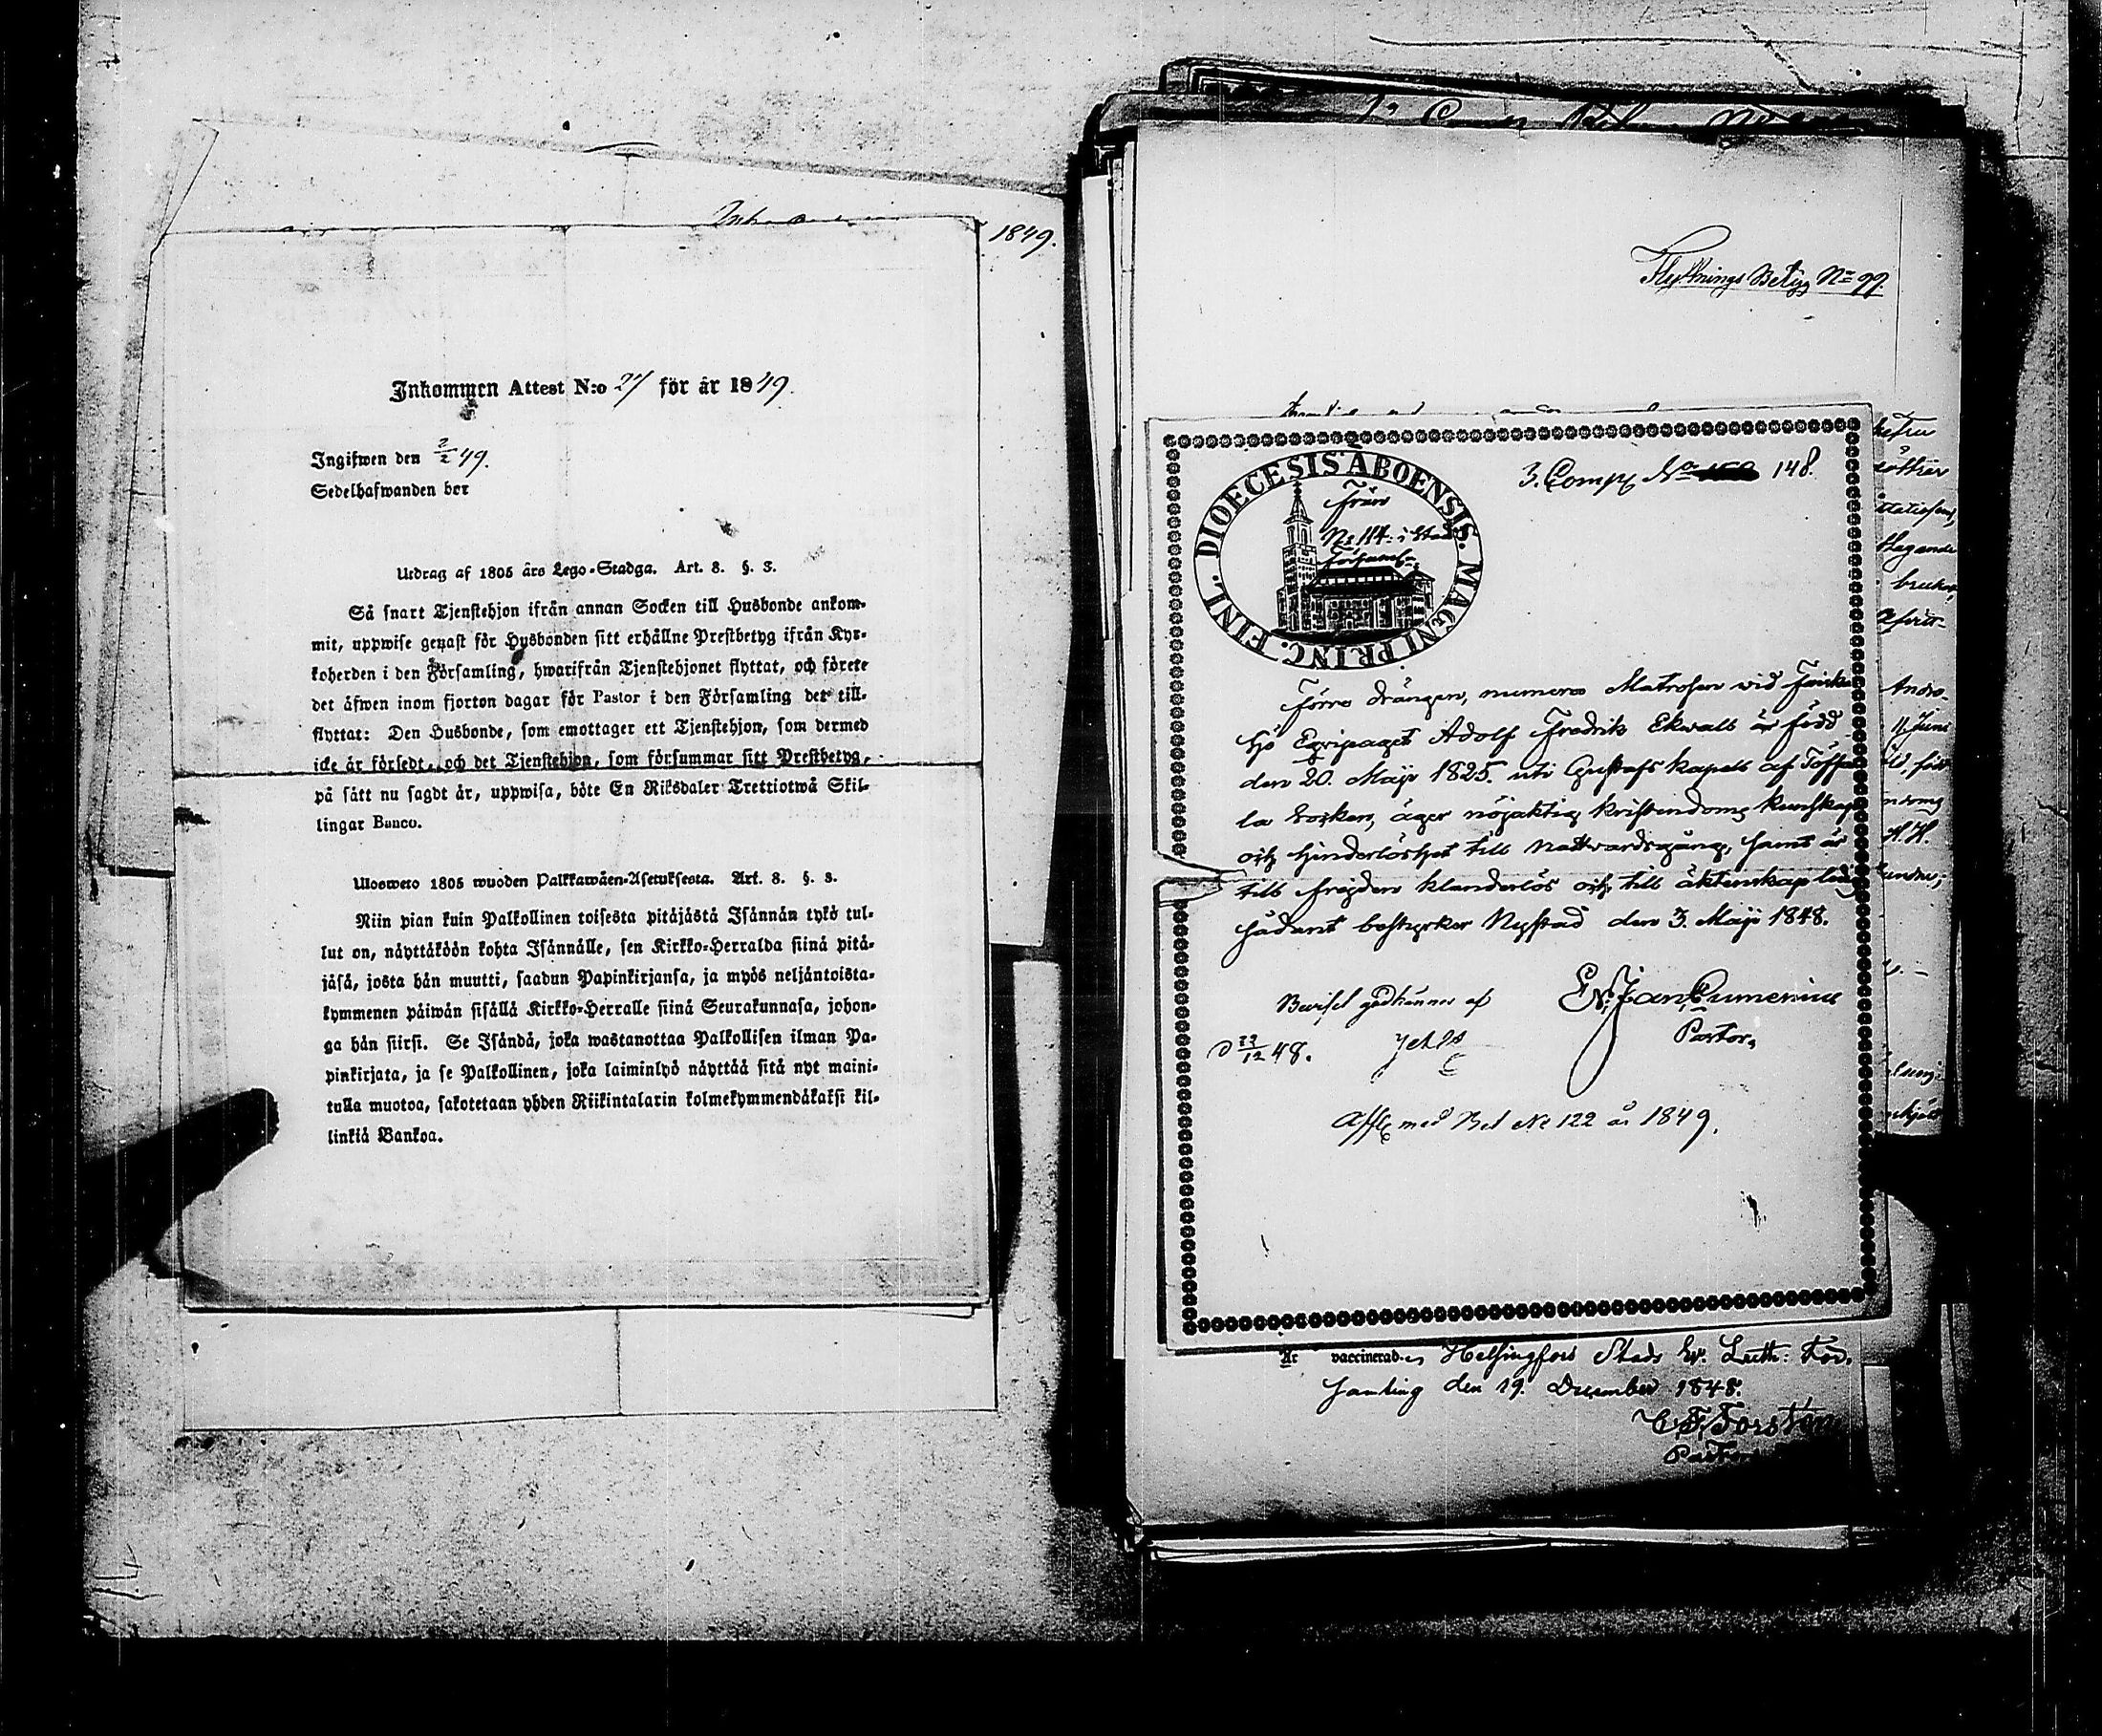 1849.
Inkommen Attest N:o 27 för år 1849.
Ingifwen den 2/2 49.
Sedelhafwanden bor
Utdrag af 1805 års Lego-Stadga. Art. 8. §. 3.
Så snart Tjenstehjon ifrån annan Socken till Husbonde ankom-
mit, uppwise genast för Husbonden sitt erhållne Prestbetyg ifrån Kyr-
koherden i den Församling, hwarifrån Tjenstehjonet flyttat, och förete
det äfwen inom fjorton dagar för Pastor i den Församling det till-
flyttat: Den Husbonde, som emottager ett Tjenstehjon, som dermed
icke är försedt, och det Tjenstehjon, som försummar sitt Prestbetyg,
på sätt nu sagdt är, uppwisa, böte En Riksdaler Trettiotwå Skil-
lingar Banco.
Uloswето 1805 wuoden Palkkawäen-Asetuksesta. Art. 8. §. 3.
Niin pian kuin Palkollinen toisesta pitäjästä Isännän tykö tul-
lut on, näyttäköön kohta Isännälle, sen Kirkko-Herralda siinä pitä-
jäsä, josta hän muutti, saadun Papinkirjansa, ja myös neljäntoista-
kymmenen päiwän sisällä Kirkko-Herralle siinä Seurakunnasa, johon-
ga hän siirsi. Se Isändä, joka wastanottaa Palkollisen ilman Pa-
pinkirjata, ja se Palkollinen, joka laiminlyö näyttää sitä nyt maini-
tulla muotoa, sakotetaan yhden Riikintalarin kolmekymmendäkaksi kil-
linkiä Bankoa.
Flyttnings Betyg No 99.
3. Comp No 148.
DIOECESIS ÅBOENSIS. MAGNI PRINC. FINL.
Från
No 114 i Stads
Församl.
Förre drängen, numera Matrosen wid Finska
Sjö Eqvipaget Adolf Fredrik Ekwall är född
den 20. Maji 1825. uti Gustafs kapell af Töffsa
la Socken, äger nöjaktig kristendoms kunskap
och hinderlöshet till Nattvardsgång, samt är
till frejden klanderlös och till äktenskap ledig
sådant bestyrker Nystad den 3. Maji 1848.
Ev. Jan. Cumenius
Pastor.
Beviset godkännes af
D 22/12 48.
Affl med Bet No 122 år 1849.
Är vaccinerad. Helsingfors Stads Ev. Luth: För-
samling den 19. December 1848.
C F Forstén
Pastor